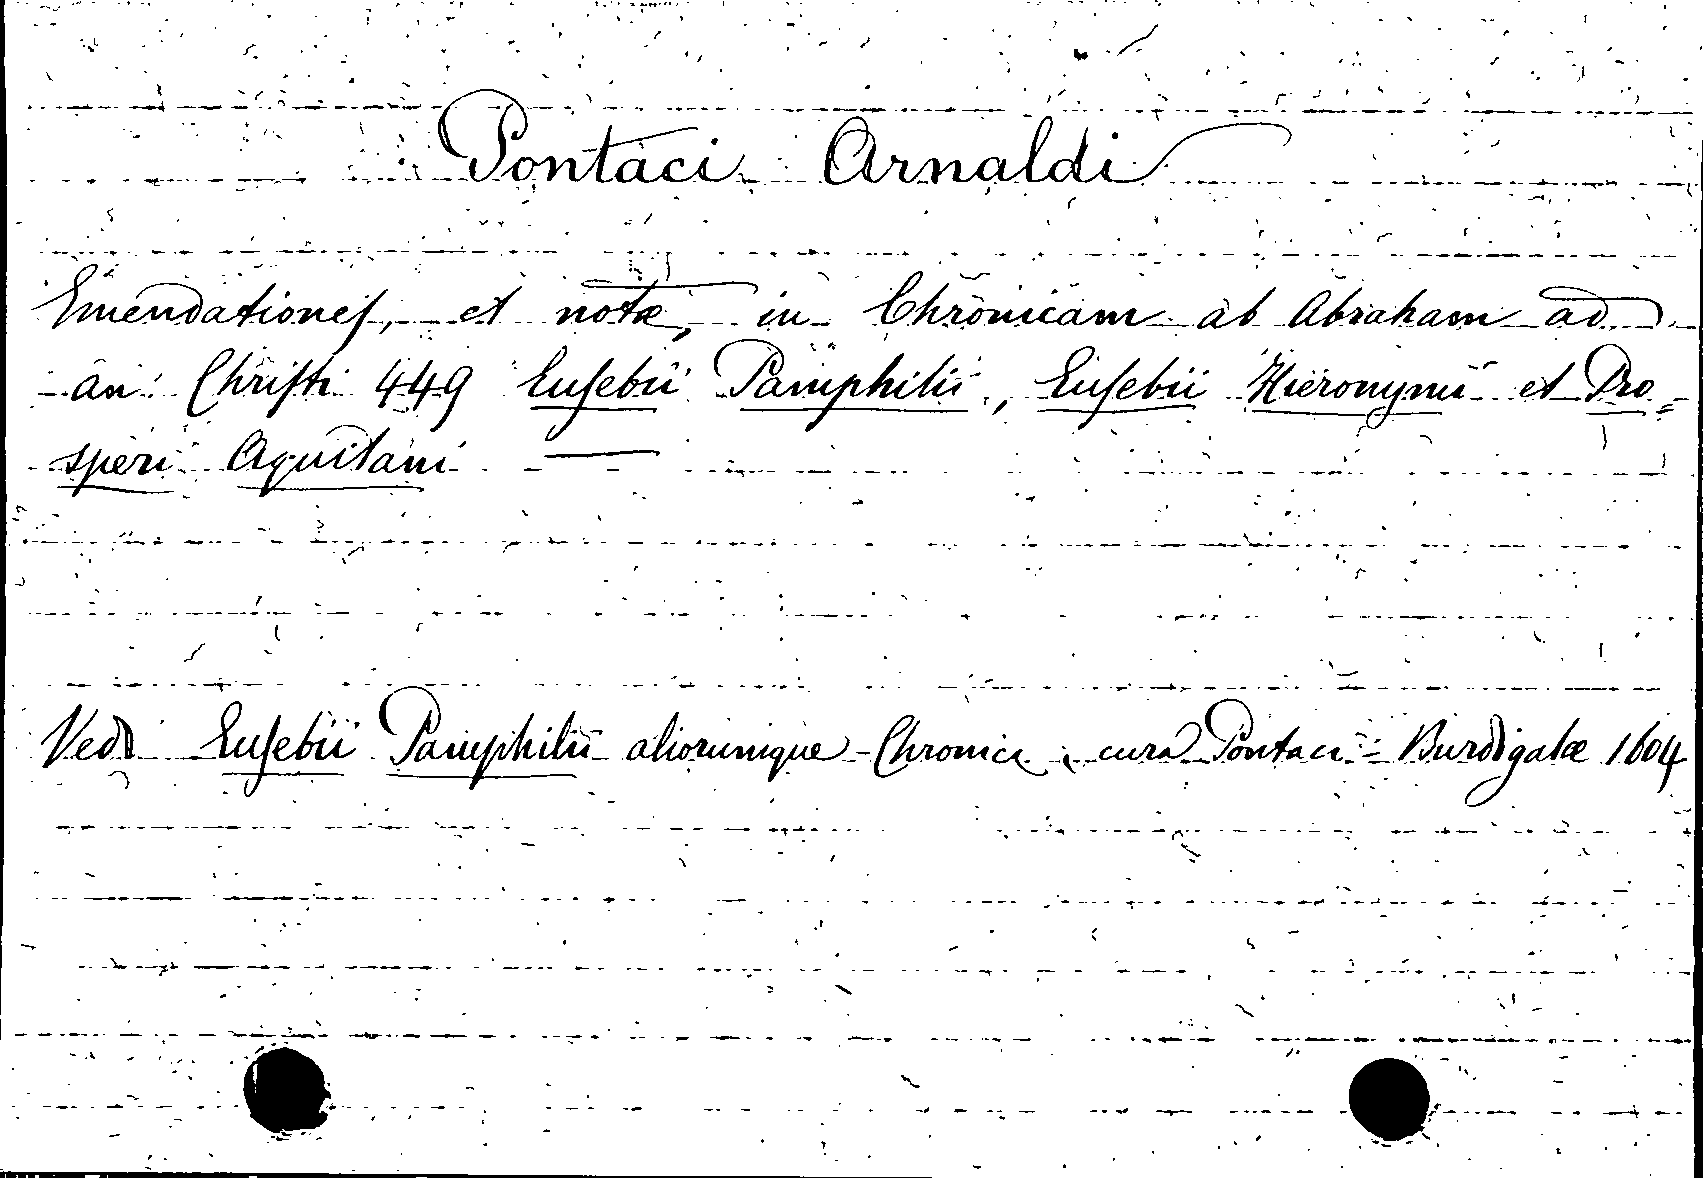 Pontaci Arnaldi
Emendationes, et notæ, in Chronicam ab Abraham ad
an: Christi 449 Eusebii Pamphilii, Eusebii Hieronymii et Pro=
speri Aquitani —
Vedi Eusebii Pamphilii aliorumque Chronica, cura Pontaci = Burdigalæ 1604